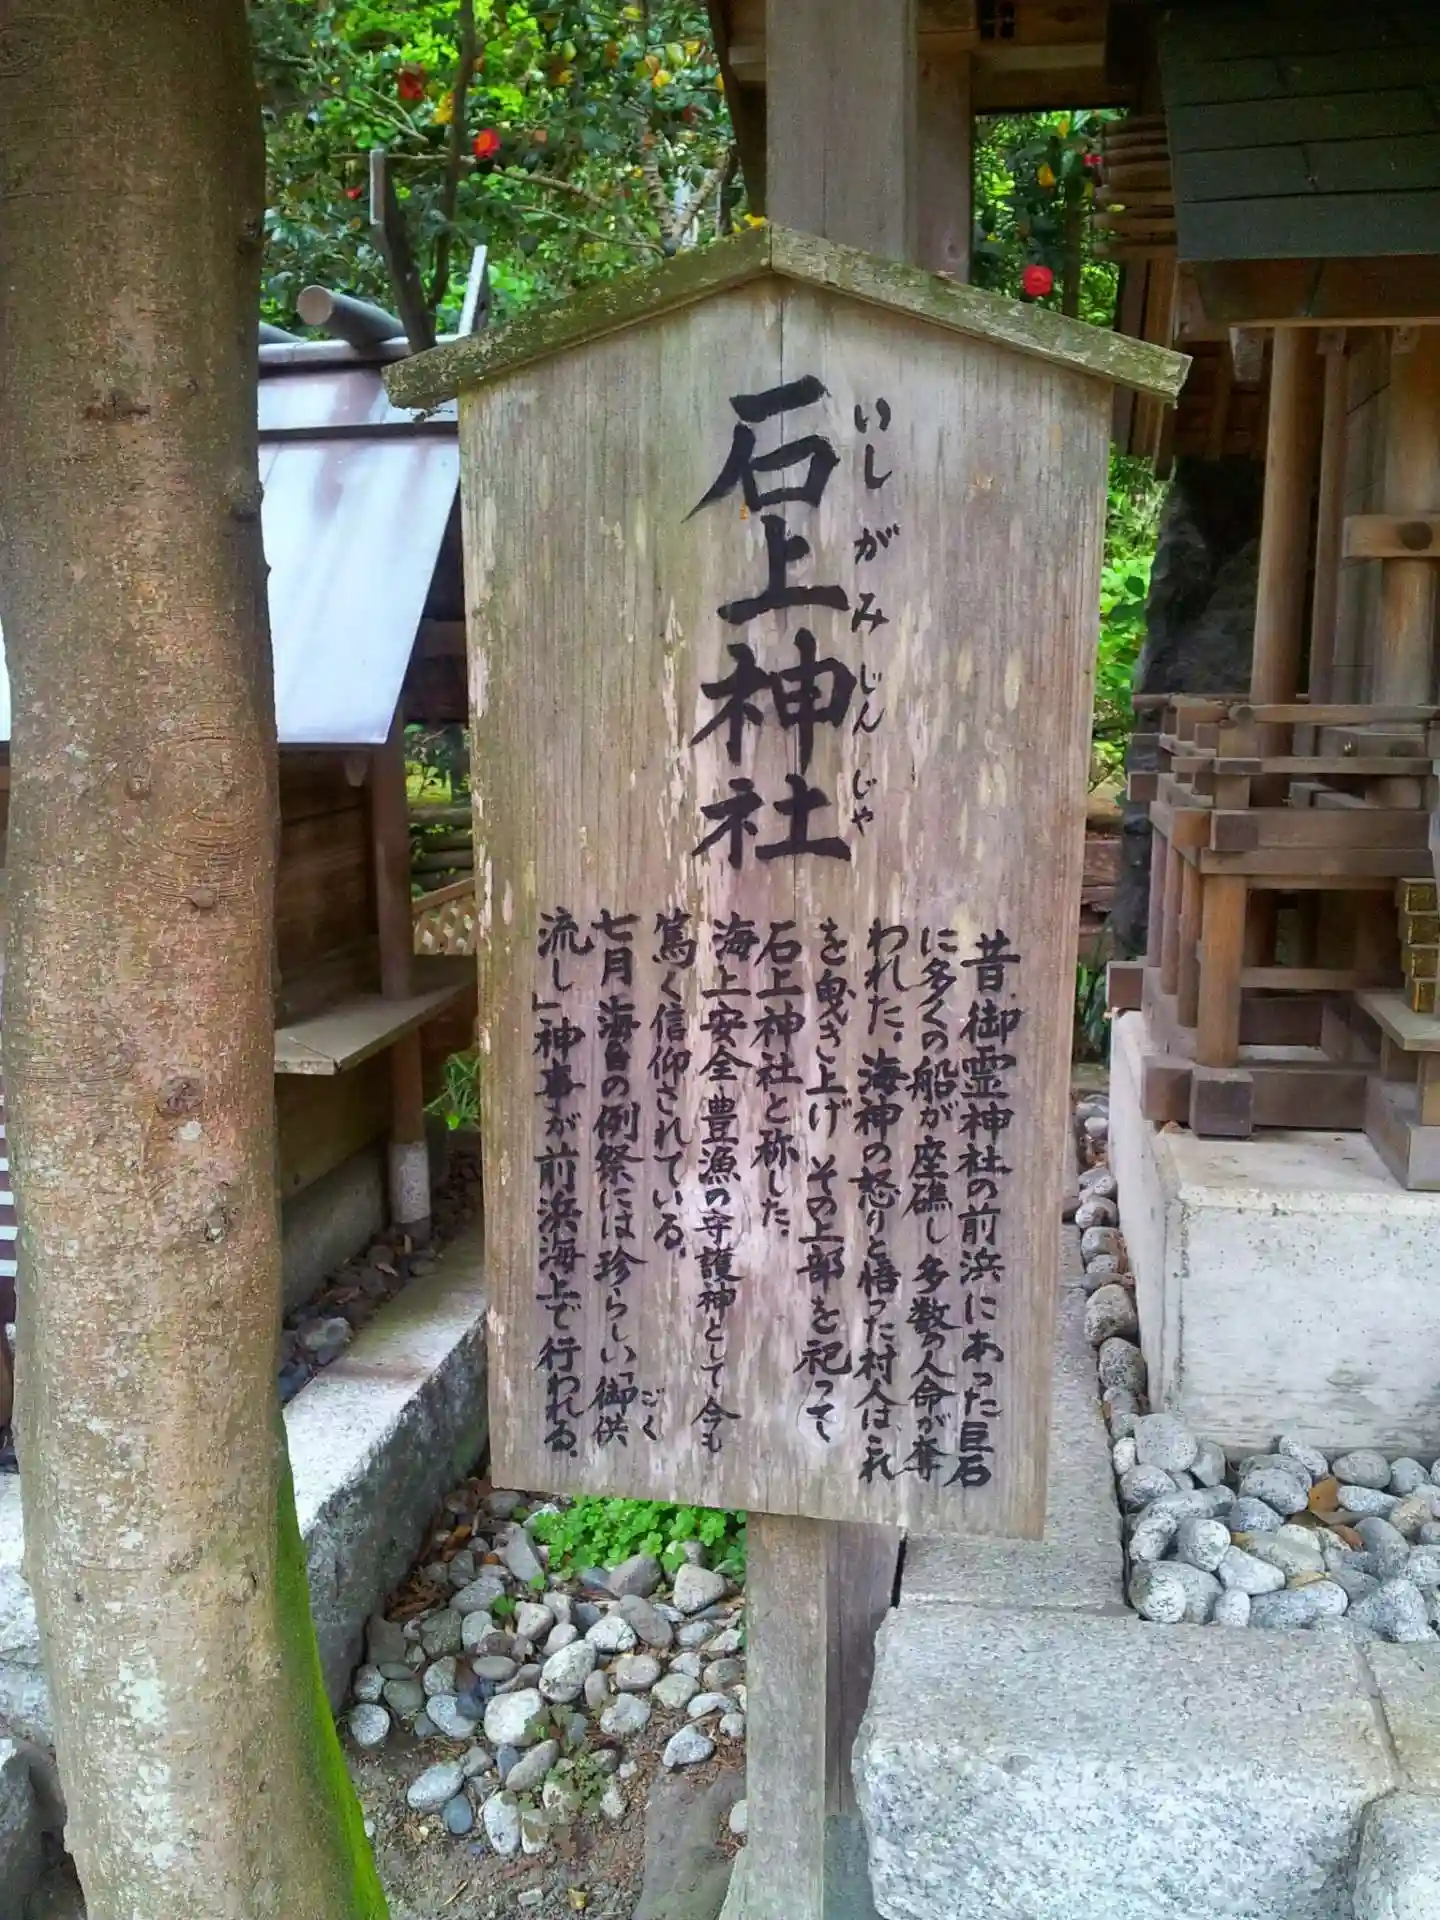 石上神社
いしがみじんじゃ
昔、御霊神社の前浜にあった巨石
に多くの船が座礁し多数の人命が奪
われた。海神の怒りと悟った村人は、これ
を曳き上げ その上部を祀って
石上神社と称した。
海上安全・豊漁の守護神として今も
篤く信仰されている。
七月海の日の例祭には珍らしい「御供
ごく
流し」神事が前浜海上で行われる。